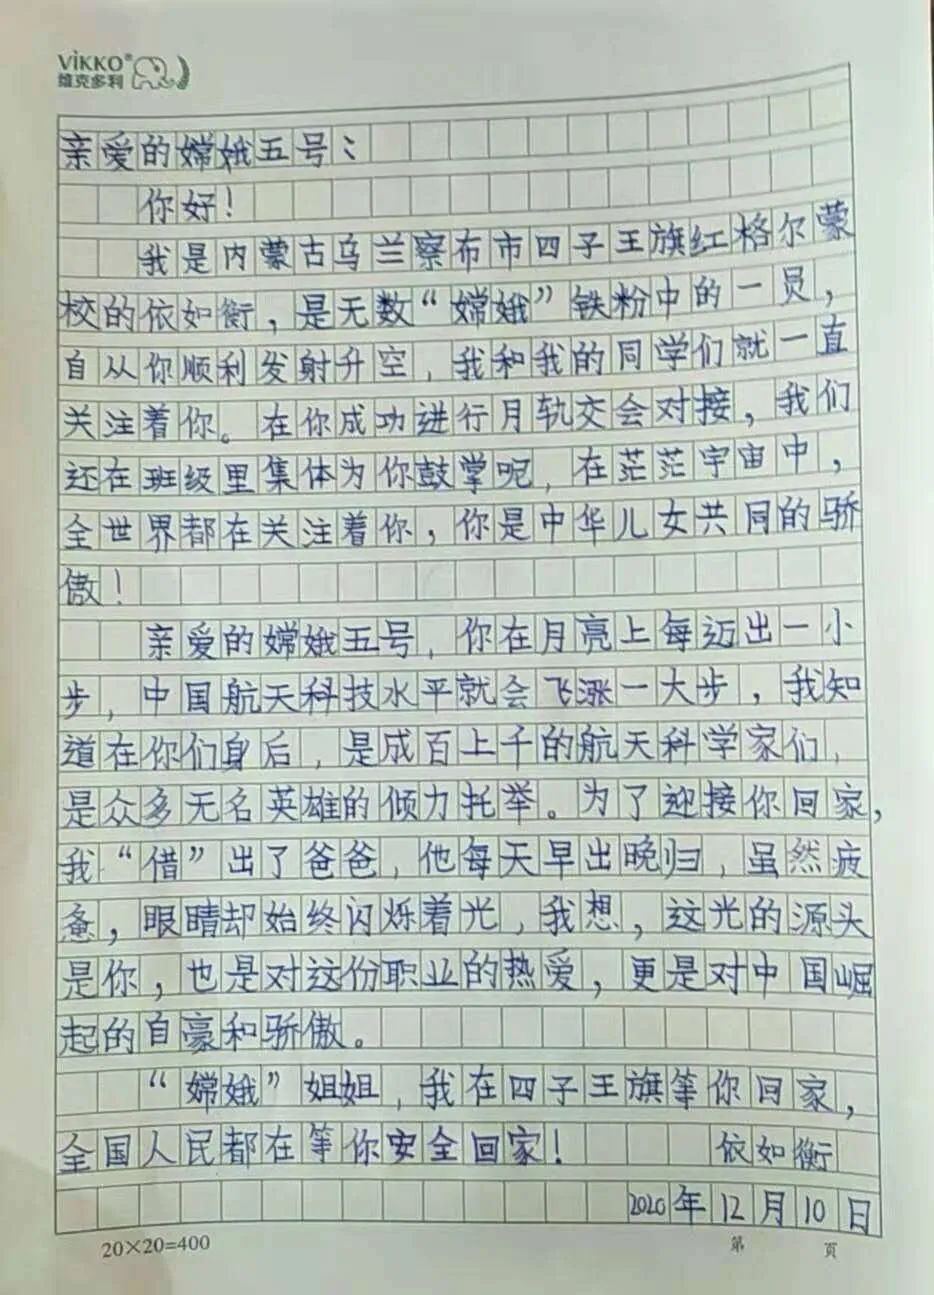 ViKKO®
维克多利
亲爱的嫦娥五号：
你好！
我是内蒙古乌兰察布市四子王旗红格尔蒙
校的依如衡，是无数“嫦娥”铁粉中的一员，
自从你顺利发射升空，我和我的同学们就一直
关注着你。在你成功进行月轨交会对接，我们
还在班级里集体为你鼓掌呢，在茫茫宇宙中，
全世界都在关注着你，你是中华儿女共同的骄
傲！
亲爱的嫦娥五号，你在月亮上每迈出一小
步，中国航天科技水平就会飞涨一大步，我知
道在你们身后，是成百上千的航天科学家们，
是众多无名英雄的倾力托举。为了迎接你回家，
我“借”出了爸爸，他每天早出晚归，虽然疲
惫，眼睛却始终闪烁着光，我想，这光的源头
是你，也是对这份职业的热爱，更是对中国崛
起的自豪和骄傲。
“嫦娥”姐姐，我在四子王旗等你回家，
全国人民都在等你安全回家！ 依如衡
2020年12月10日
20×20=400 第 页